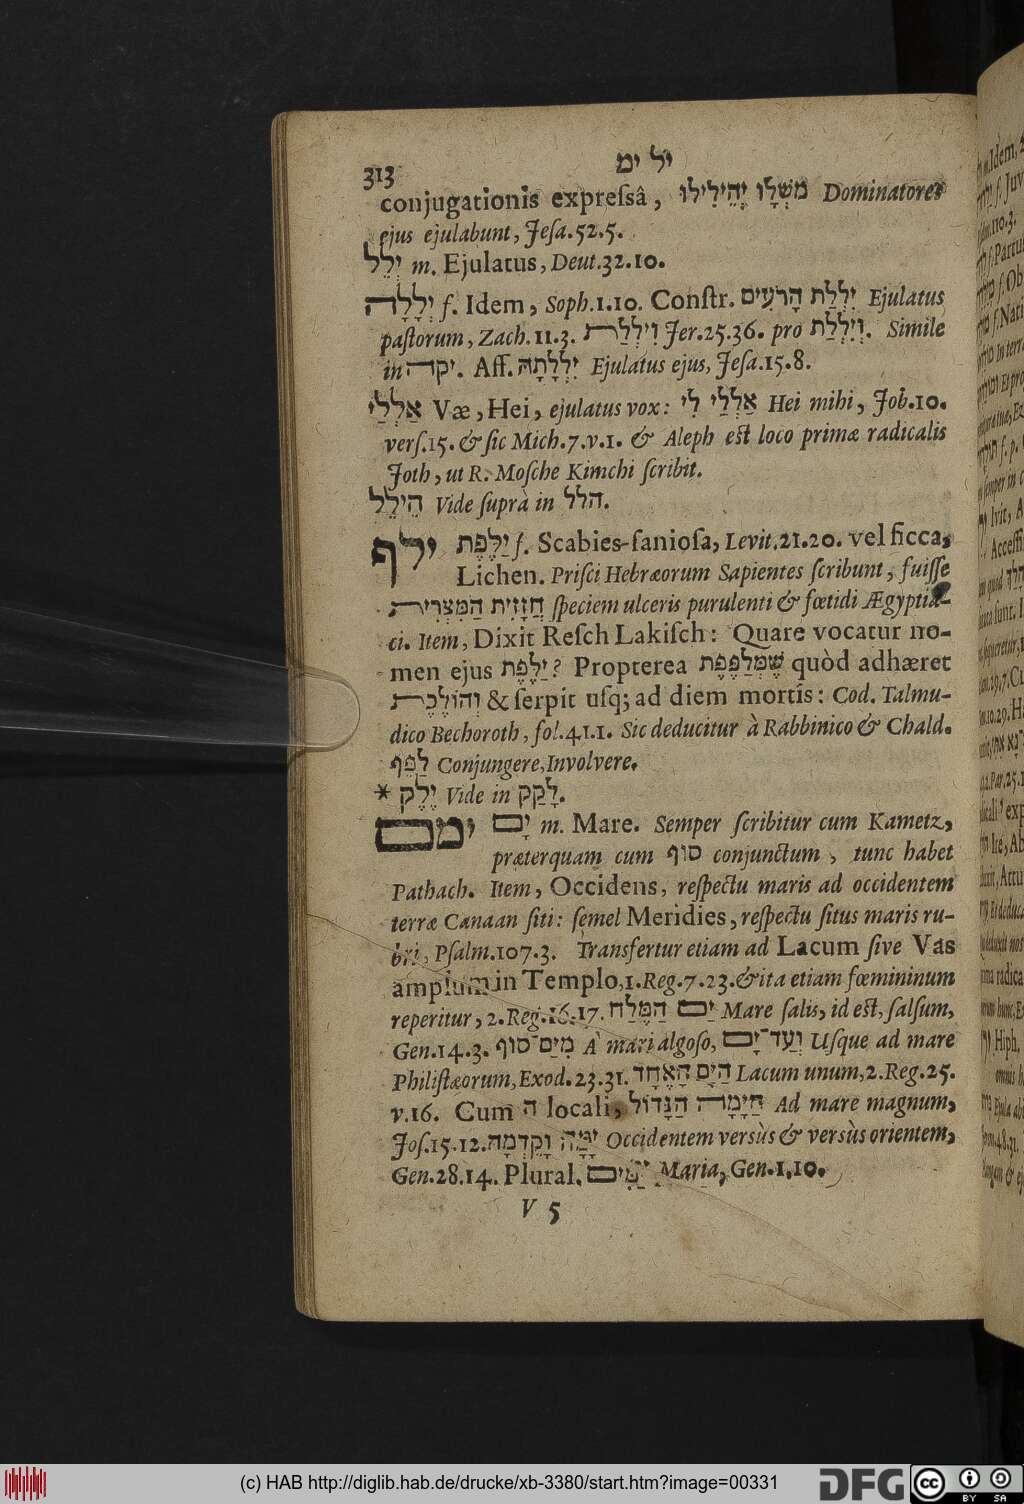 313 יל ים
conjugationis expreſsâ, מֹשְׁלָו יְהֵילִילוּ Dominatores
ejus ejulabunt, Jeſa.52.5.
יְלֵל m. Ejulatus, Deut.32.10.
יְלָלָה f. Idem, Soph.1.10. Conſtr. יִלְלַת הָרֹעִים Ejulatus
paſtorum, Zach.11.3. וִילְלַת Jer.25.36. pro וְיִלְלַת. Simile
in יקה. Aff. יִלְלָתָהּ Ejulatus ejus, Jeſa.15.8.
אַלְלַי Væ, Hei, ejulatus vox: אַלְלַי לִי Hei mihi, Job.10.
verſ.15. & ſic Mich.7.v.1. & Aleph eſt loco primæ radicalis
Joth, ut R. Moſche Kimchi ſcribit.
הֵילֵל Vide ſuprà in הלל.
ילף יַלֶּפֶת f. Scabies-ſanioſa, Levit.21.20. vel ſicca,
Lichen. Priſci Hebræorum Sapientes ſcribunt, fuiſſe
חֲזָזִית הַמִּצְרִית ſpeciem ulceris purulenti & fœtidi Ægyptia-
ci. Item, Dixit Reſch Lakiſch: Quare vocatur no-
men ejus יַלֶּפֶת? Propterea שֶׁמְּלַפֶּפֶת quòd adhæret
וְהוֹלֶכֶת & ſerpit uſq; ad diem mortis: Cod. Talmu-
dico Bechoroth, fol.41.1. Sic deducitur à Rabbinico & Chald.
לַפֵּף Conjungere, Involvere.
* יֶלֶק Vide in לָקַק.
ימם יָם m. Mare. Semper ſcribitur cum Kametz,
præterquam cum סוּף conjunctum, tunc habet
Pathach. Item, Occidens, reſpectu maris ad occidentem
terræ Canaan ſiti: ſemel Meridies, reſpectu ſitus maris ru-
bri, Pſalm.107.3. Transfertur etiam ad Lacum ſive Vas
amplum in Templo, 1.Reg.7.23. & ita etiam fœmininum
reperitur, 2.Reg.16.17. יַם הַמֶּלַח Mare ſalis, id eſt, ſalſum,
Gen.14.3. מִיַּם־סוּף A mari algoſo, וְעַד־יָם Uſque ad mare
Philiſtæorum, Exod.23.31. הַיָּם הָאֶחָד Lacum unum, 2.Reg.25.
v.16. Cum ה locali, הַיָּמָה הַגָּדוֹל Ad mare magnum,
Joſ.15.12. יָמָּה וָקֵדְמָה Occidentem versùs & versùs orientem,
Gen.28.14. Plural. יַמִּים Maria, Gen.1.10.
V 5
(c) HAB http://diglib.hab.de/drucke/xb-3380/start.htm?image=00331
DFG
cc BY SA